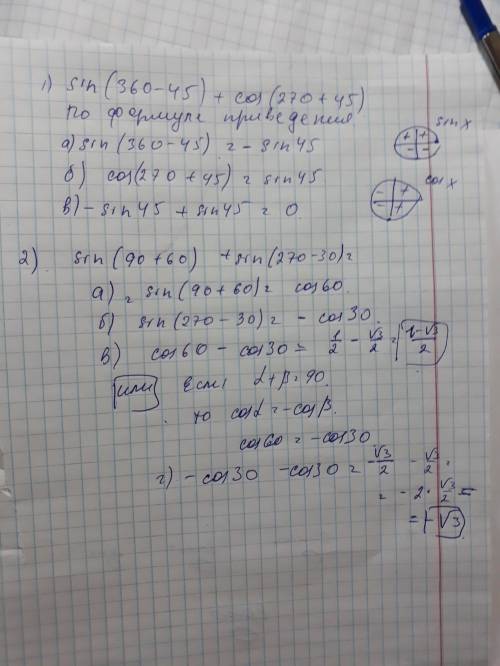 1) sin(360-45) + cos(270+45)
По формуле приведения
а) sin(360-45) = -sin45
sin x
+ +
- -
б) cos(270+45) = sin45
cos x
- +
- +
в) -sin45 + sin45 = 0
2) sin(90+60) + sin(270-30) =
а) = sin(90+60) = cos60.
б) sin(270-30) = -cos30.
в) cos60 - cos30 = 1/2 - √3/2 = (1-√3)/2
или Если α+β=90.
то cosα = -cosβ.
cos60 = -cos30
г) -cos30 - cos30 = -√3/2 - √3/2 =
= -2·√3/2 =
= -√3